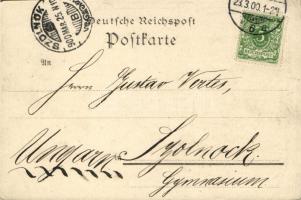 Deutsche Reichspost
Postkarte
SZOLNOK
900 MAR 25
23.3.00. 1-2N
An
Herrn Gustav Vertes,
Ungarn Szolnock.
Gymnasium